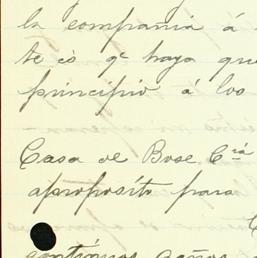 la compania á
te có q.e haya que
principio á los
Casa de Bose C.rá
aproposíto para